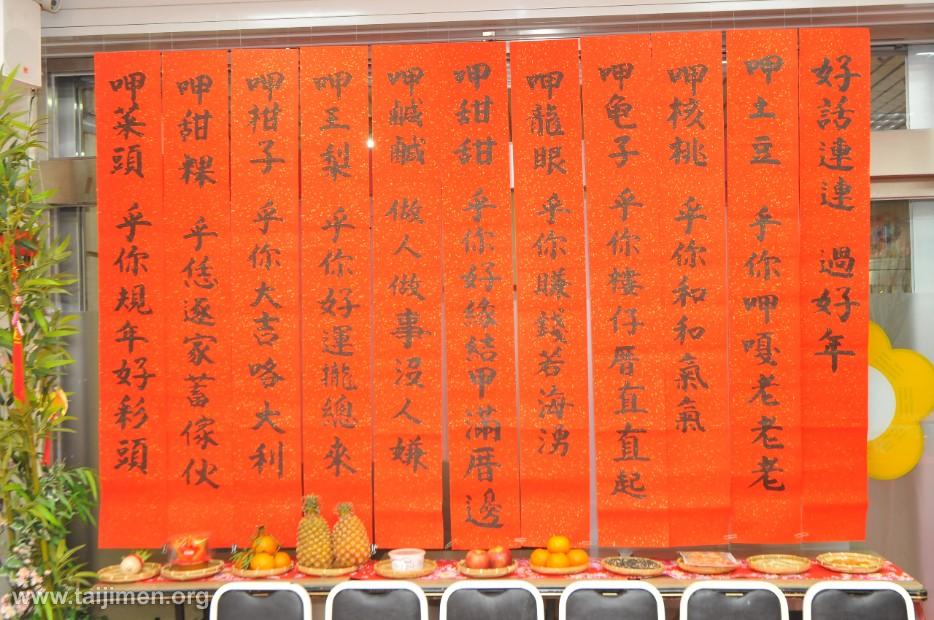 好話連連 過好年
呷土豆 乎你呷嘎老老老
呷核桃 乎你和和氣氣
呷龟子 乎你樓仔厝直直起
呷龍眼 乎你賺錢若海湧
呷甜甜 乎你好緣結甲滿厝邊
呷鹹鹹 做人做事沒人嫌
呷王梨 乎你好運攏總來
呷柑子 乎你大吉咯大利
呷甜粿 乎恁逐家蓄傢伙
呷菜頭 乎你規年好彩頭
www.taijimen.org